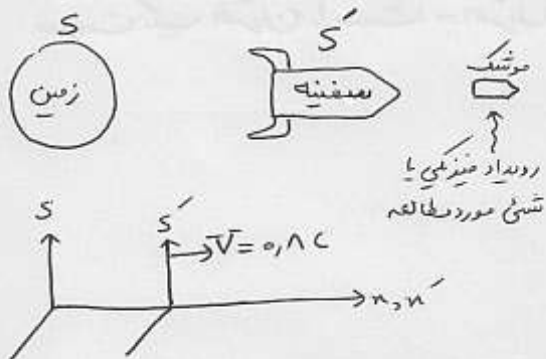 S
زمین
S′
سفینه
موشک
رویداد فیزیکی یا
شئ مورد مطالعه
S
S′
V = ۰,۸ C
x, x′